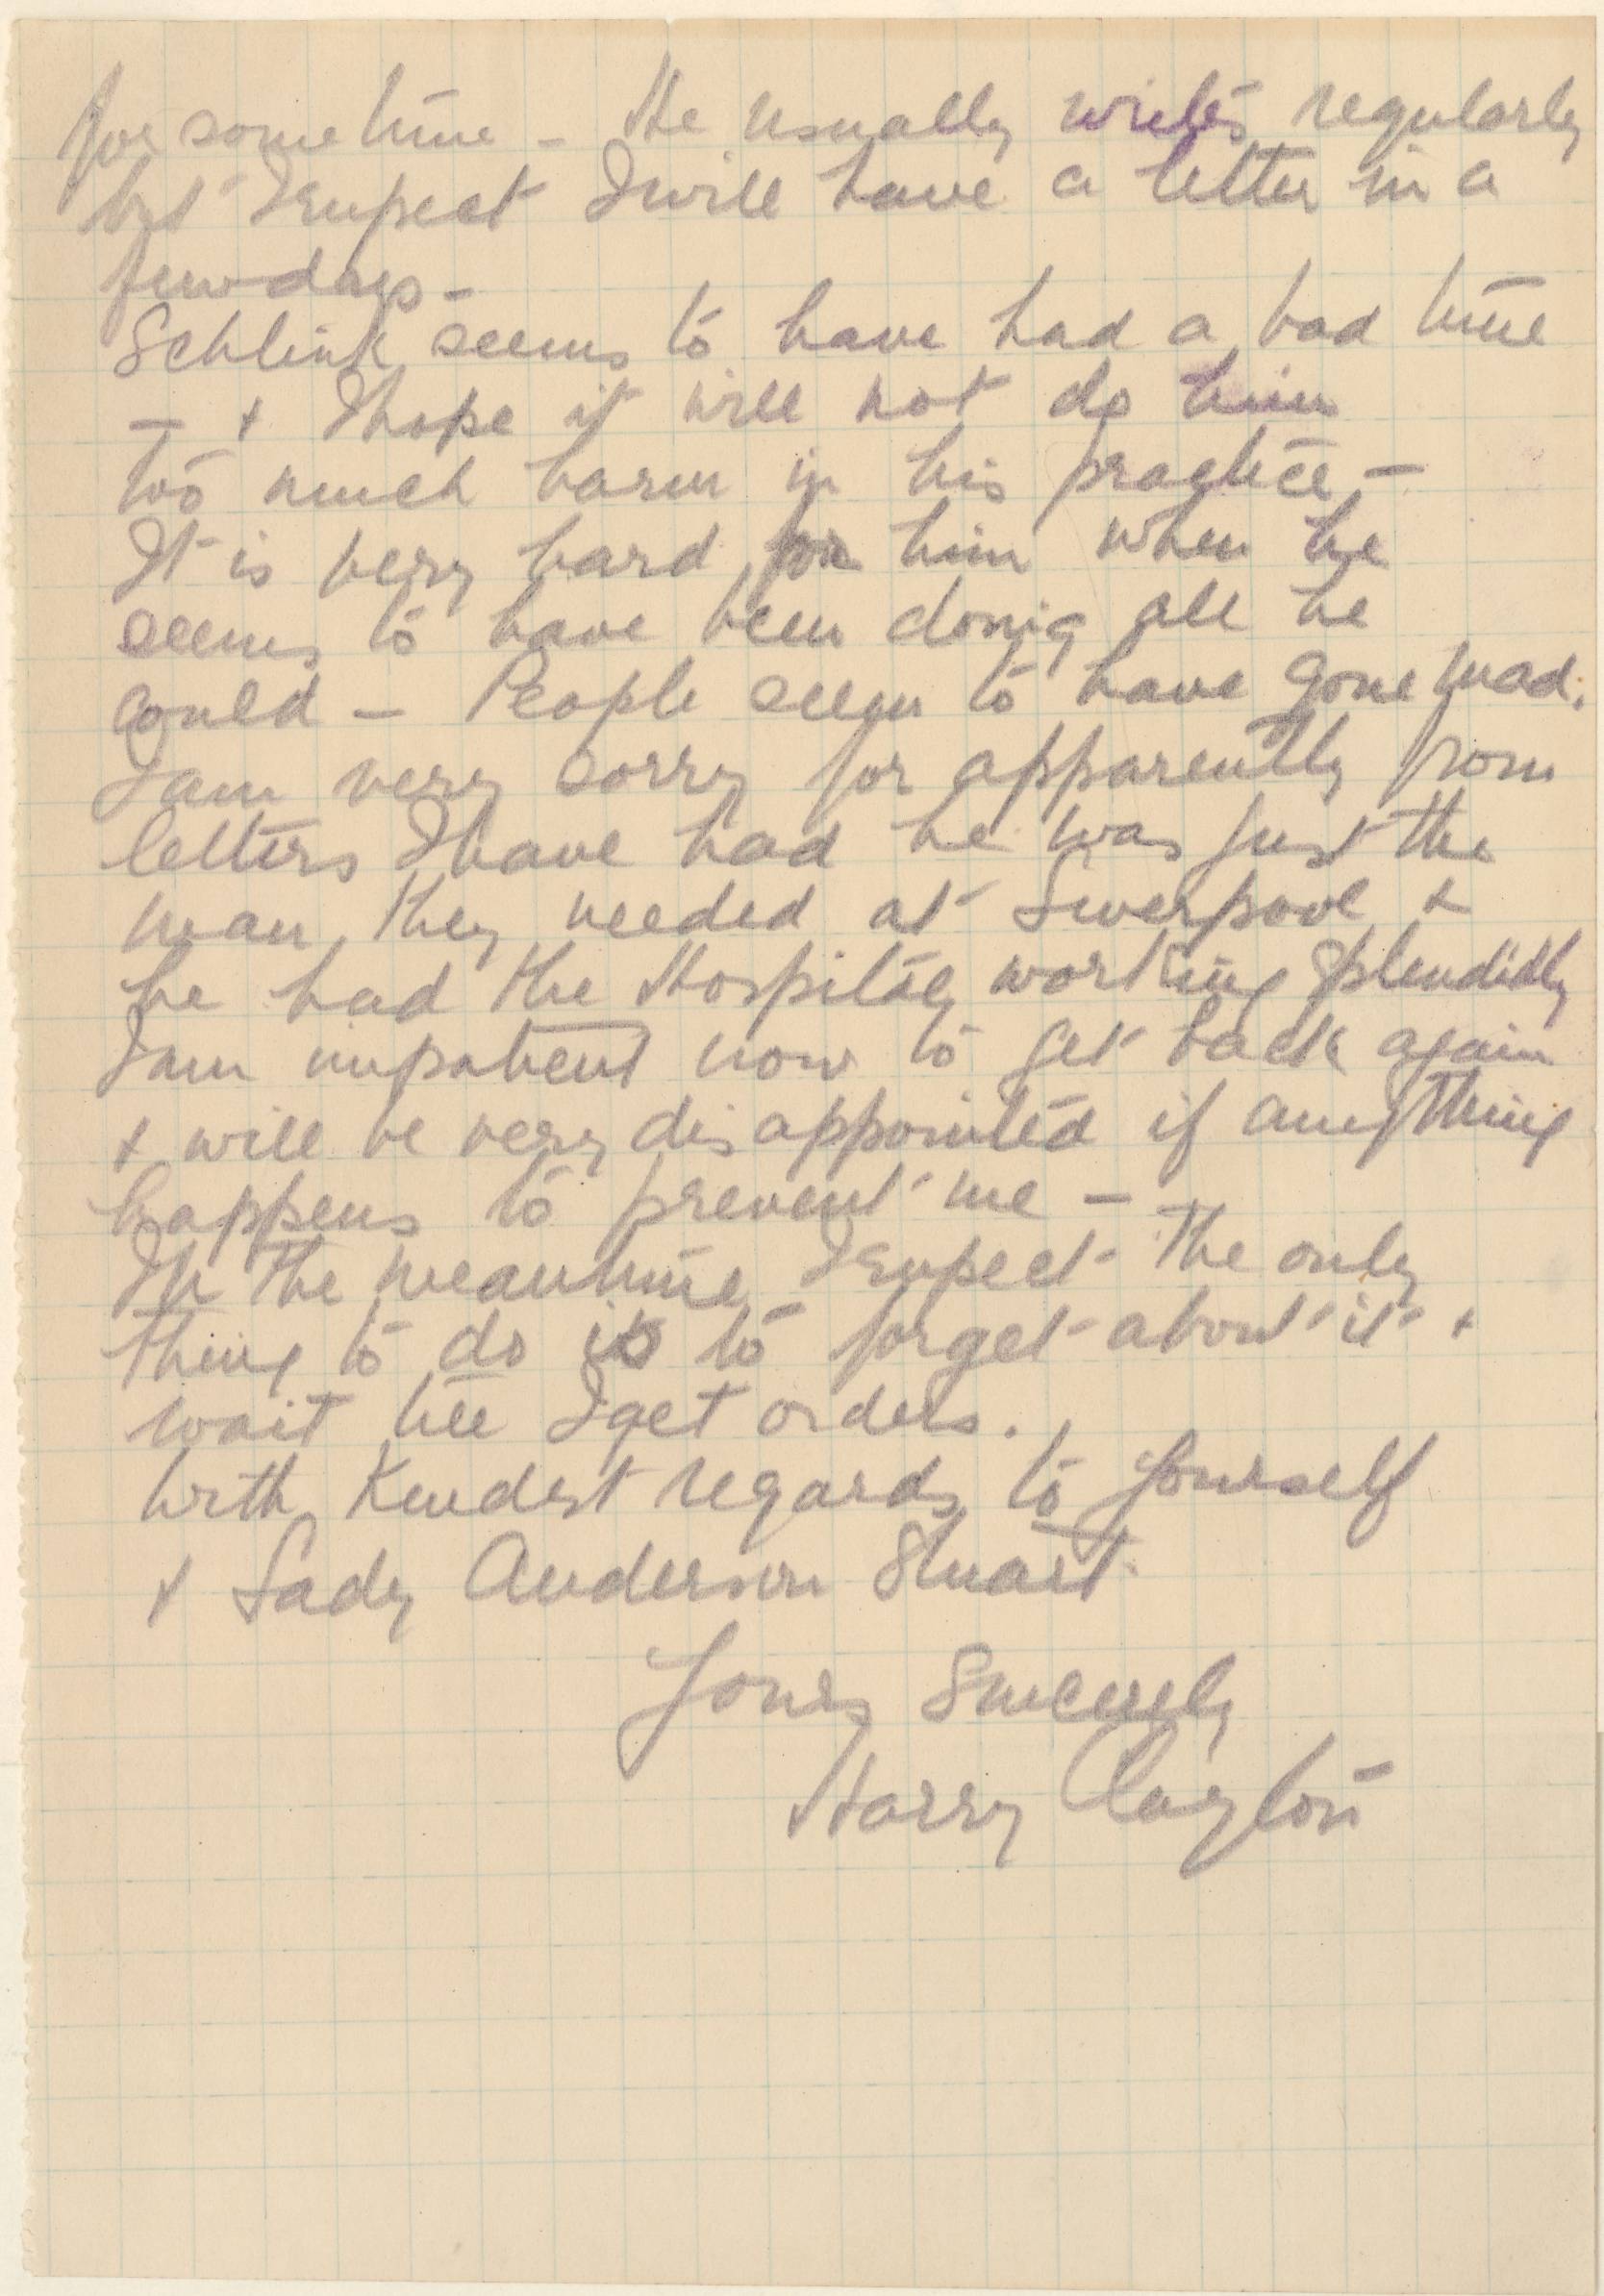 for some time – He usually writes regularly
but I expect I will have a letter in a
few days –
Schlink seems to have had a bad time
– + I hope it will not do him
too much harm in his practice –
It is very hard for him when he
seems to have been doing all he
could – People seem to have gone mad.
I am very sorry for apparently from
letters I have had he was just the
man they needed at Liverpool +
he had the Hospital working splendidly
I am impatient now to get back again
+ will be very disappointed if anything
happens to prevent me –
In the meantime I expect the only
thing to do is to forget about it +
wait till I get orders.
With Kindest regards to yourself
+ Lady Anderson Stuart
Yours Sincerely
Harry Clayton